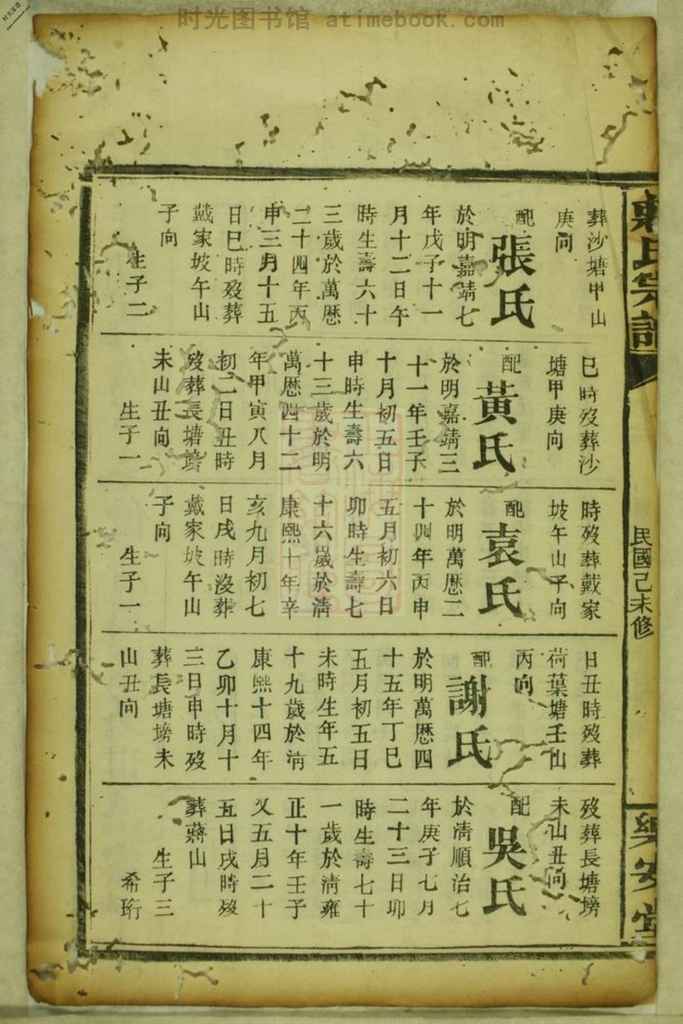 时光图书馆 atimebook.com
氏宗譜
民國己未修
樂安堂
葬沙塘甲山
庚向
配
張氏
於明嘉靖七
年戊子十一
月十二日午
時生壽六十
三歲於萬歷
二十四年丙
申三月十五
日巳時歿葬
戴家坡午山
子向
生子二
巳時歿葬沙
塘甲庚向
配
黃氏
於明嘉靖三
十一年壬子
十月初五日
申時生壽六
十三歲於明
萬歷四十二
年甲寅八月
初二日丑時
歿葬長塘塝
未山丑向
生子一
時歿葬戴家
坡午山子向
配
袁氏
於明萬歷二
十四年丙申
五月初六日
卯時生壽七
十六歲於淸
康熙十年辛
亥九月初七
日戌時沒葬
戴家坡午山
子向
生子一
日丑時歿葬
荷葉塘壬山
丙向
配
謝氏
於明萬歷四
十五年丁巳
五月初五日
未時生年五
十九歲於淸
康熙十四年
乙卯十月十
三日申時歿
葬長塘塝未
山丑向
歿葬長塘塝
未山丑向
配
吳氏
於淸順治七
年庚子七月
二十三日卯
時生壽七十
一歲於淸雍
正十年壬子
又五月二十
五日戌時歿
葬蔣山
生子三
希珩